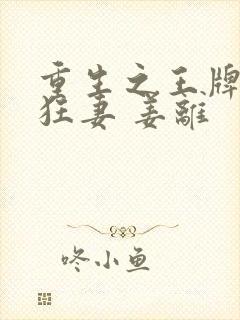 重生之王牌
狂妻 姜離
咚小鱼